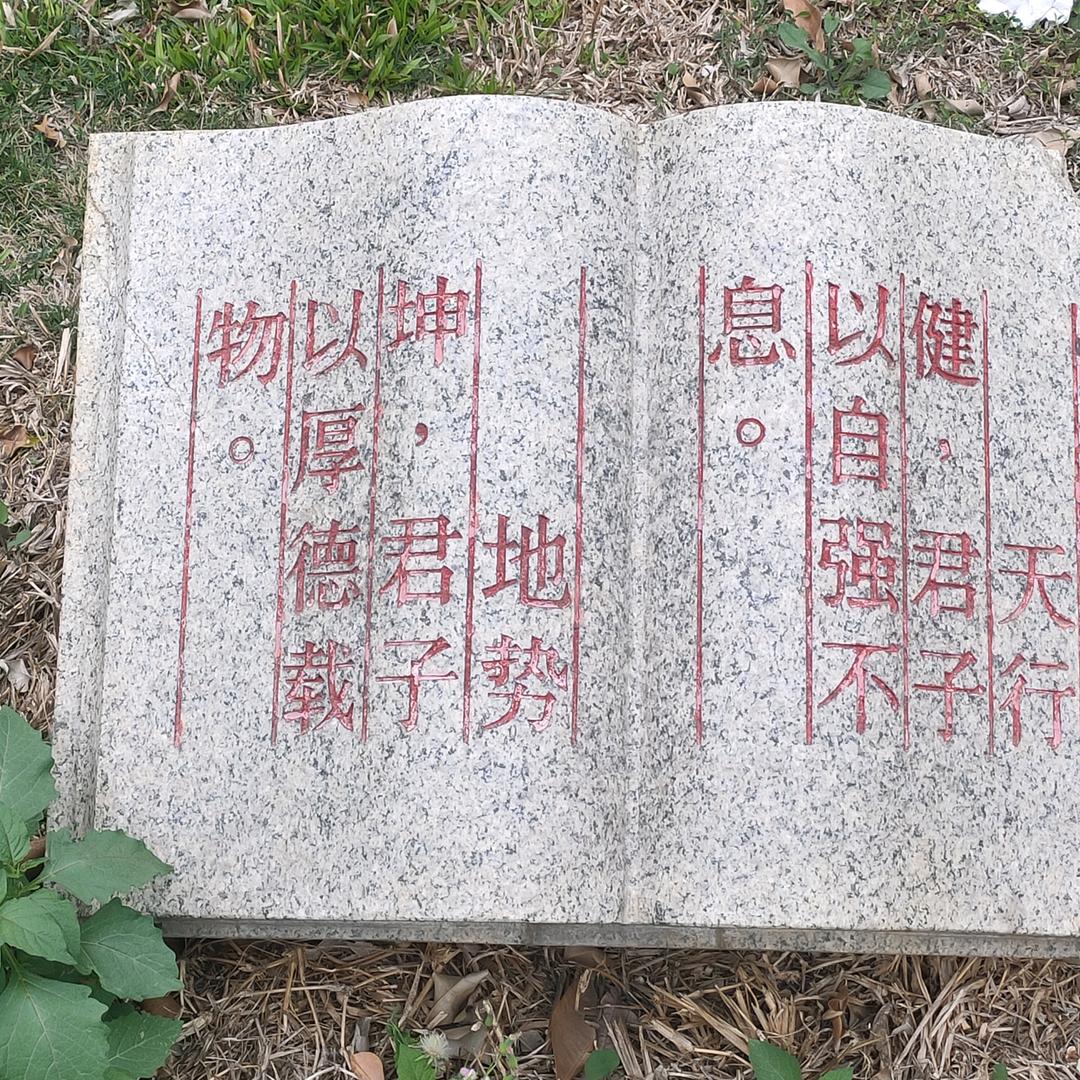 天行
健，君子
以自强不
息。
地势
坤，君子
以厚德载
物。